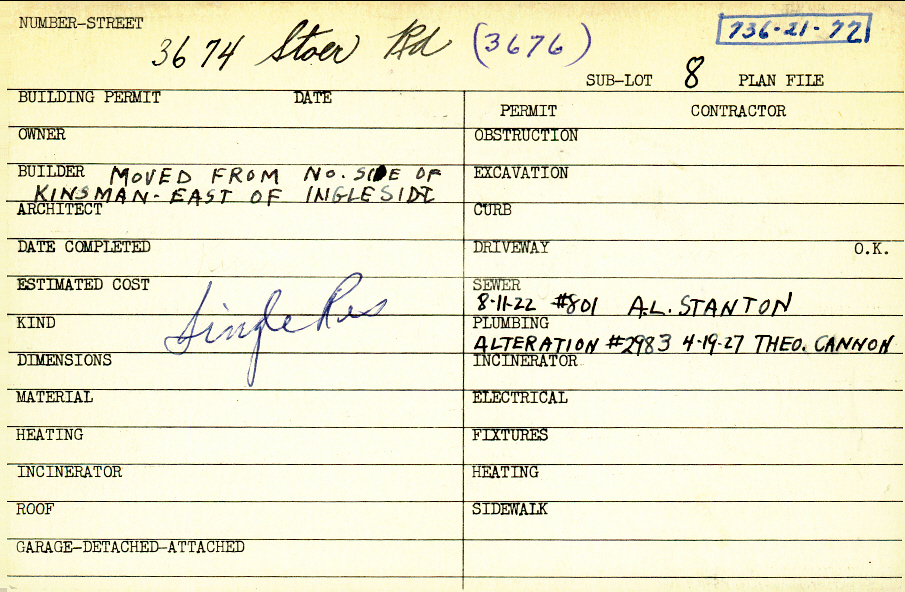 NUMBER-STREET
3674 Stoer Rd (3676)
736-21-72
SUB-LOT 8 PLAN FILE
BUILDING PERMIT DATE
OWNER
BUILDER MOVED FROM NO. SIDE OF
KINSMAN- EAST OF INGLESIDE
ARCHITECT
DATE COMPLETED
ESTIMATED COST
Single Res
KIND
DIMENSIONS
MATERIAL
HEATING
INCINERATOR
ROOF
GARAGE-DETACHED-ATTACHED
PERMIT CONTRACTOR
OBSTRUCTION
EXCAVATION
CURB
DRIVEWAY O.K.
SEWER
8-11-22 #801 A.L. STANTON
PLUMBING
ALTERATION #2983 4-19-27 THEO. CANNON
INCINERATOR
ELECTRICAL
FIXTURES
HEATING
SIDEWALK